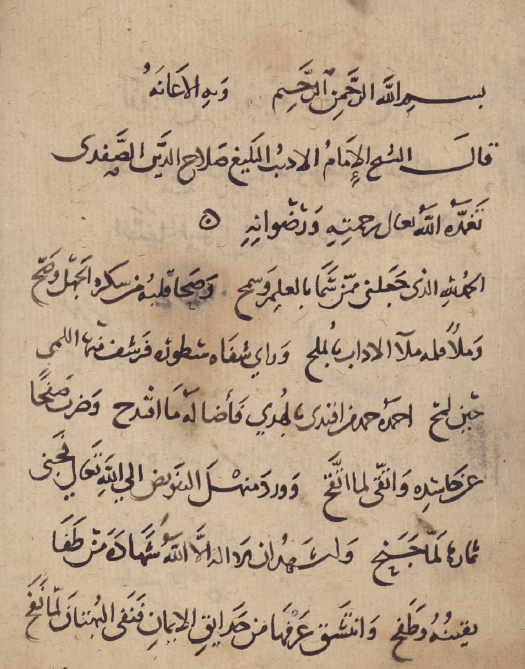 بسم الله الرحمن الرحيم وبه الاعانة
قال الشيخ الإمام الاديب البليغ صلاح الدين الصفدي
تغمده الله تعالى برحمته ورضوانه
الحمد لله الذي جعلني ممن سما بالعلم وسمح وصحا قلبه من سكرة الجهل وصح
وملأ قلبه ملآ الاداب بالملح وراي شفاه سطوره فرشف منها اللمى
حين لمح احمده حمد من اقتدى بالهدي فأضا له ما اقتدح وضرب صفحا
عن حاسده واتقى لما اتقح وورد منهل التفويض الى الله تعالى فجنى
ثماره لما جنح واشهد ان لا اله الا الله شهادة من طفا
يقينه وطفح وانتشق عرفها من حدايق الايمان فنفى البهتان لما نفح